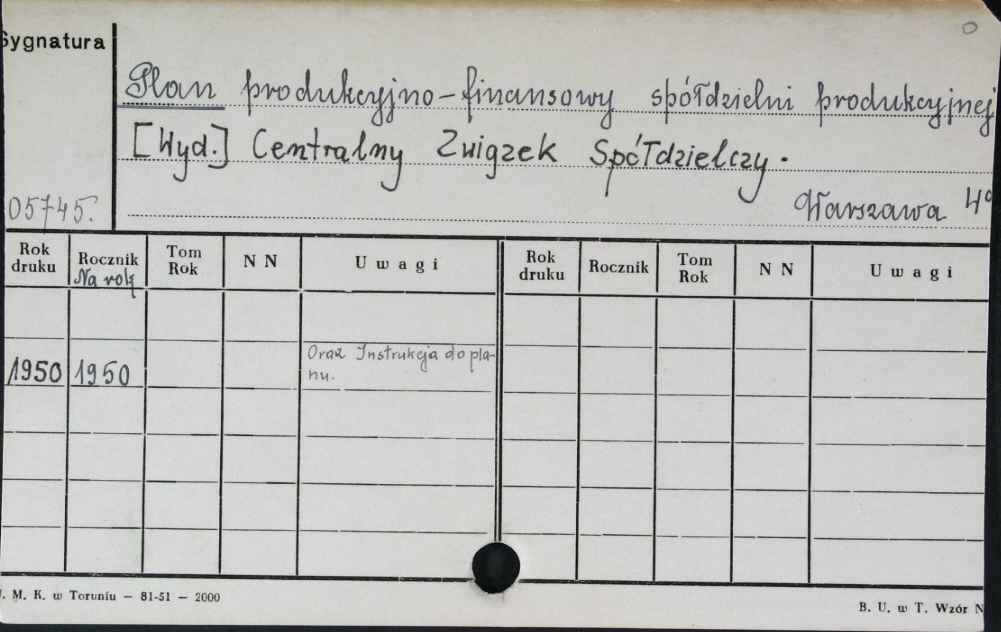 Sygnatura
Plan produkcyjno-finansowy spółdzielni produkcyjnej
[Wyd.] Centralny Związek Spółdzielczy.
05745.
Warszawa 4º
Rok druku Rocznik Tom Rok N N Uwagi Rok druku Rocznik Tom Rok N N Uwagi
Na rok
1950 1950 Oraz Instrukcja do pla-
nu.
. M. K. w Toruniu — 81-51 — 2000
B. U. w T. Wzór N